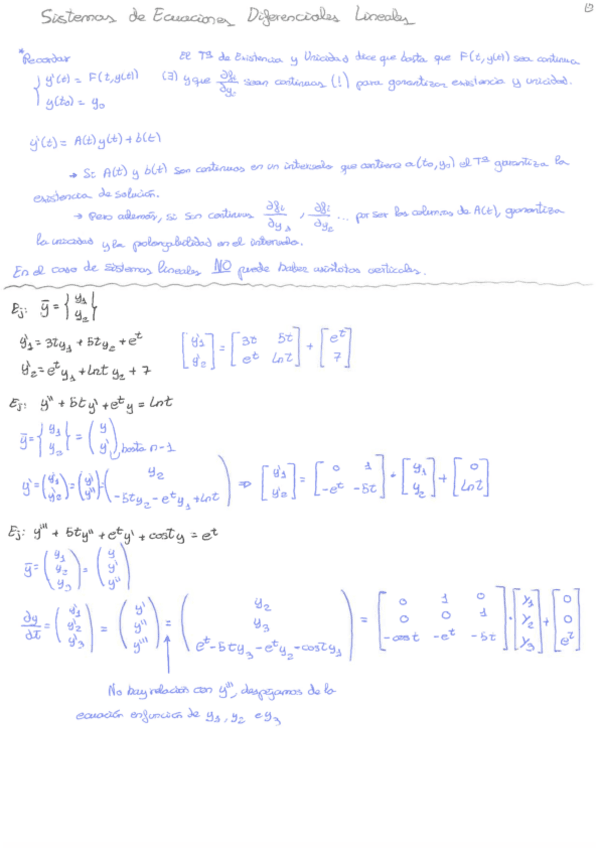 Sistemas de Ecuaciones Diferenciales Lineales
*Recordar
El Tª de Existencia y Unicidad dice que basta que F(t, y(t)) sea continua
{ y'(t) = F(t, y(t)) (∃) y que ∂fi/∂yi sean continuas (!) para garantizar existencia y unicidad.
y(t0) = y0
y'(t) = A(t)y(t) + b(t)
→ Si A(t) y b(t) son continuas en un intervalo que contiene a (t0, y0) el Tª garantiza la
existencia de solución.
→ Pero además, si son continuas ∂fi/∂y1, ∂fi/∂y2 ... por ser las columnas de A(t), garantiza
la unicidad y la prolongabilidad en el intervalo.
En el caso de sistemas lineales NO puede haber asíntotas verticales.
Ej: ȳ = { y1 y2 }
y'1 = 3ty1 + 5ty2 + e^t [y'1 y'2] = [3t 5t; e^t lnt] + [e^t 7]
y'2 = e^t y1 + lnt y2 + 7
Ej: y'' + 5ty' + e^t y = lnt
ȳ = { y1 y2 } = ( y y' ) hasta n-1
y' = (y'1 y'2) = (y' y'') = ( y2; -5ty2 - e^t y1 + lnt ) ⇒ [y'1 y'2] = [0 1; -e^t -5t] · [y1 y2] + [0 lnt]
Ej: y''' + 5ty'' + e^t y' + cost y = e^t
ȳ = ( y1 y2 y3 ) = ( y y' y'' )
dy/dt = ( y'1 y'2 y'3 ) = ( y' y'' y''' ) = ( y2; y3; e^t - 5ty3 - e^t y2 - cost y1 ) = [0 1 0; 0 0 1; -cost -e^t -5t] · [y1 y2 y3] + [0 0 e^t]
No hay relación con y''', despejamos de la
ecuación en función de y1, y2 e y3